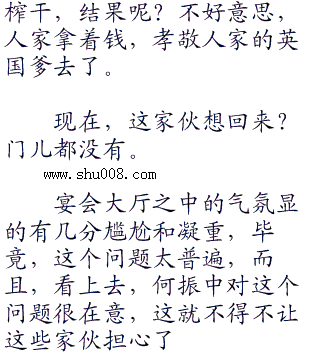 榨干，结果呢？不好意思，
人家拿着钱，孝敬人家的英
国爹去了。
现在，这家伙想回来？
门儿都没有。
www.shu008.com
宴会大厅之中的气氛显
的有几分尴尬和凝重，毕
竟，这个问题太普遍，而
且，看上去，何振中对这个
问题很在意，这就不得不让
这些家伙担心了